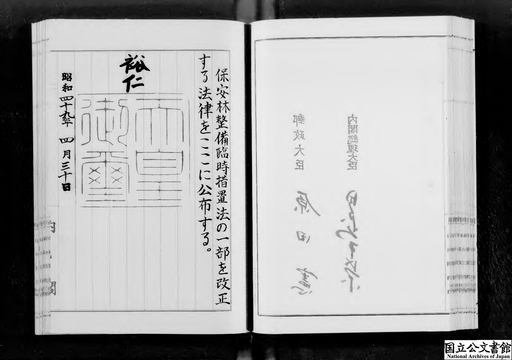 保安林整備臨時措置法の一部を改正
する法律をここに公布する。
裕仁
天皇
御璽
昭和四十九年四月三十日
内閣
内閣総理大臣
郵政大臣
原田
国立公文書館
National Archives of Japan